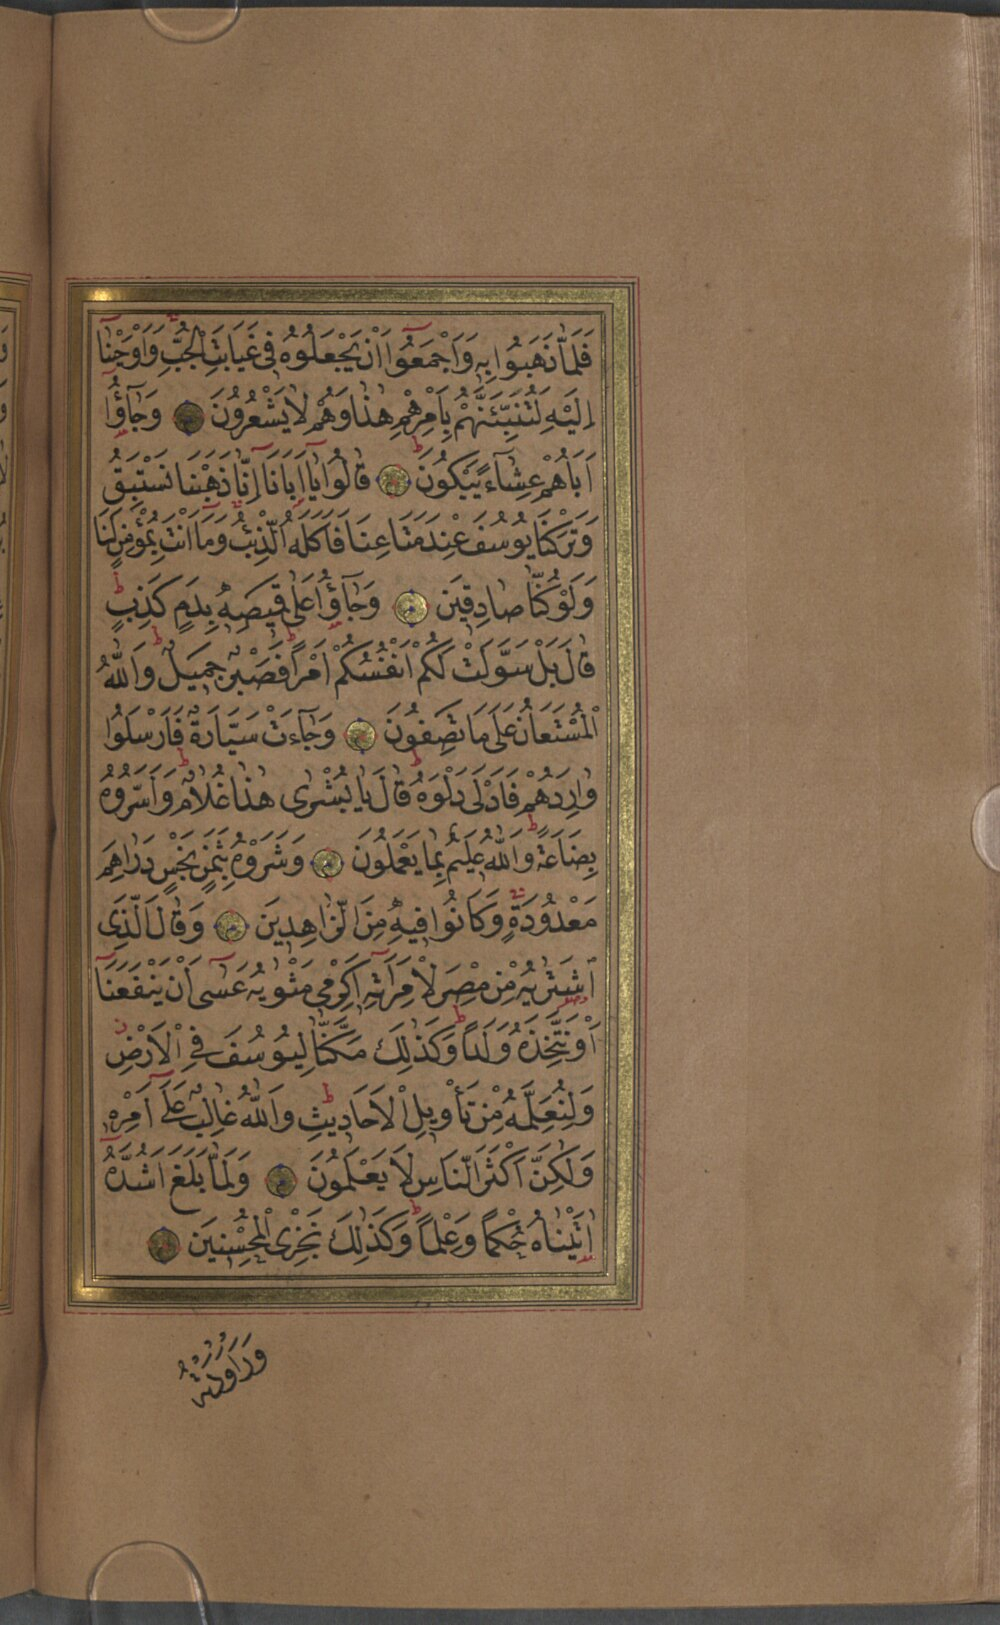 فَلَمَّا ذَهَبُوا بِهِ وَاَجْمَعُٓوا اَنْ يَجْعَلُوهُ فِى غَيَابَتِ الْجُبِّ وَاَوْحَيْنَٓا
اِلَيْهِ لَتُنَبِّئَنَّهُمْ بِاَمْرِهِمْ هٰذَا وَهُمْ لَا يَشْعُرُونَ وَجَٓاؤُٓا
اَبَاهُمْ عِشَٓاءً يَبْكُونَ قَالُوا يَٓا اَبَانَٓا اِنَّا ذَهَبْنَا نَسْتَبِقُ
وَتَرَكْنَا يُوسُفَ عِنْدَ مَتَاعِنَا فَاَكَلَهُ الذِّئْبُ وَمَٓا اَنْتَ بِمُؤْمِنٍ لَنَا
وَلَوْ كُنَّا صَادِقِينَ وَجَٓاؤُ عَلٰى قَمِيصِهِ بِدَمٍ كَذِبٍ
قَالَ بَلْ سَوَّلَتْ لَكُمْ اَنْفُسُكُمْ اَمْرًا فَصَبْرٌ جَمِيلٌ وَاللّٰهُ
الْمُسْتَعَانُ عَلٰى مَا تَصِفُونَ وَجَٓاءَتْ سَيَّارَةٌ فَاَرْسَلُوا
وَارِدَهُمْ فَاَدْلٰى دَلْوَهُ قَالَ يَا بُشْرٰى هٰذَا غُلَامٌ وَاَسَرُّوهُ
بِضَاعَةً وَاللّٰهُ عَلِيمٌ بِمَا يَعْمَلُونَ وَشَرَوْهُ بِثَمَنٍ بَخْسٍ دَرَاهِمَ
مَعْدُودَةٍ وَكَانُوا فِيهِ مِنَ الزَّاهِدِينَ وَقَالَ الَّذِى
اشْتَرٰيهُ مِنْ مِصْرَ لِامْرَاَتِهِ اَكْرِمِى مَثْوٰيهُ عَسٰٓى اَنْ يَنْفَعَنَٓا
اَوْ نَتَّخِذَهُ وَلَدًا وَكَذٰلِكَ مَكَّنَّا لِيُوسُفَ فِى الْاَرْضِ
وَلِنُعَلِّمَهُ مِنْ تَأْوِيلِ الْاَحَادِيثِ وَاللّٰهُ غَالِبٌ عَلٰٓى اَمْرِهِ
وَلٰكِنَّ اَكْثَرَ النَّاسِ لَا يَعْلَمُونَ وَلَمَّا بَلَغَ اَشُدَّهُ
اٰتَيْنَاهُ حُكْمًا وَعِلْمًا وَكَذٰلِكَ نَجْزِى الْمُحْسِنِينَ
وَرَاوَدَتْهُ